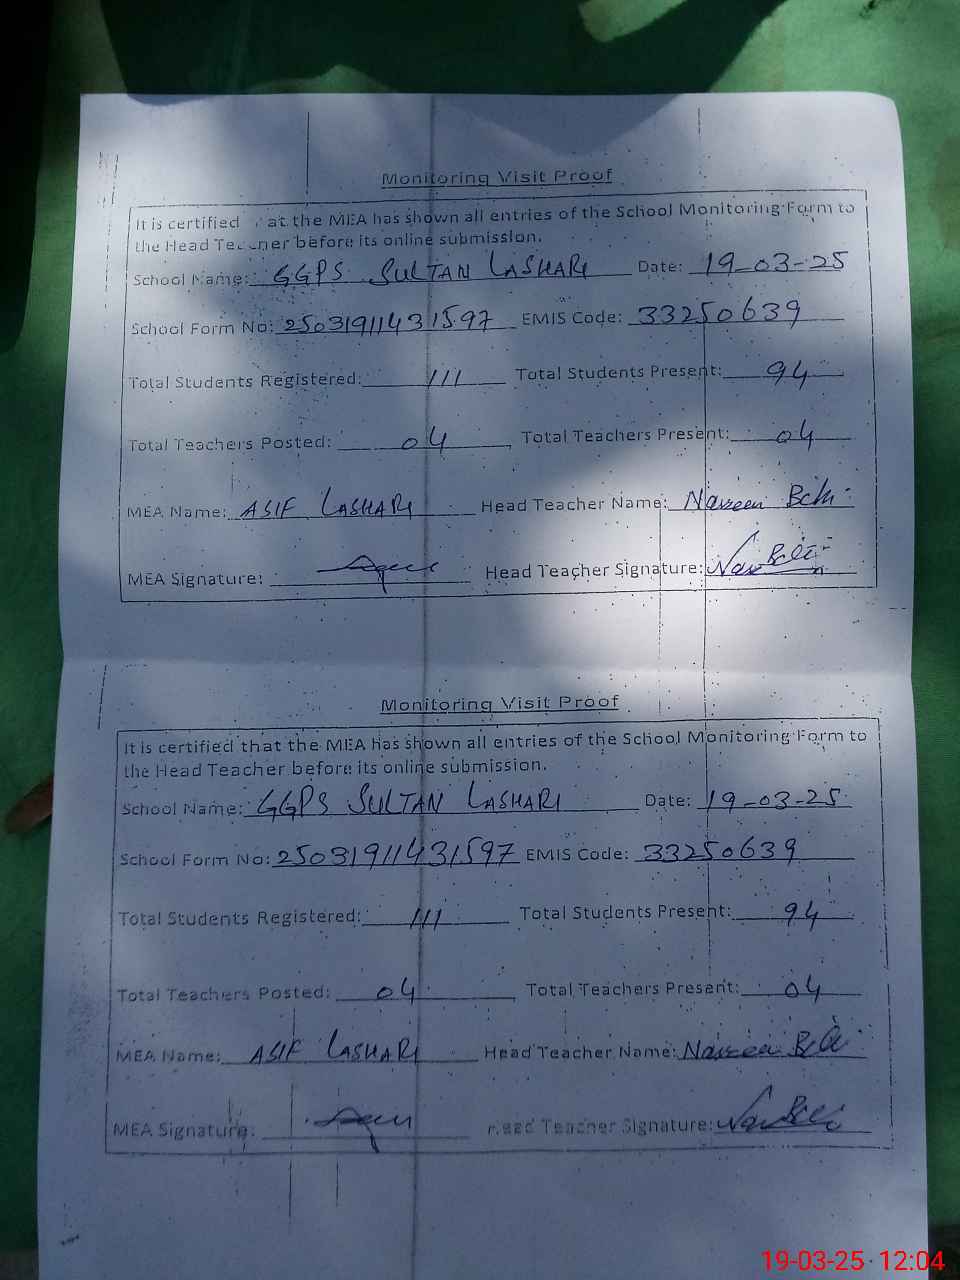 Monitoring Visit Proof
It is certified at the MEA has shown all entries of the School Monitoring Form to
the Head Teacher before its online submission.
School Name: GGPS SULTAN LASHARI Date: 19-03-25
School Form No: 25031911431597 EMIS Code: 33250639
Total Students Registered: 111 Total Students Present: 94
Total Teachers Posted: 04 Total Teachers Present: 04
MEA Name: ASIF LASHARI Head Teacher Name: Nazeen
MEA Signature: Head Teacher Signature:
Monitoring Visit Proof
It is certified that the MEA has shown all entries of the School Monitoring Form to
the Head Teacher before its online submission.
School Name: GGPS SULTAN LASHARI Date: 19-03-25
School Form No: 25031911431597 EMIS Code: 33250639
Total Students Registered: 111 Total Students Present: 94
Total Teachers Posted: 04 Total Teachers Present: 04
MEA Name: ASIF LASHARI Head Teacher Name: Nazeen
MEA Signature: Head Teacher Signature:
19-03-25 12:04